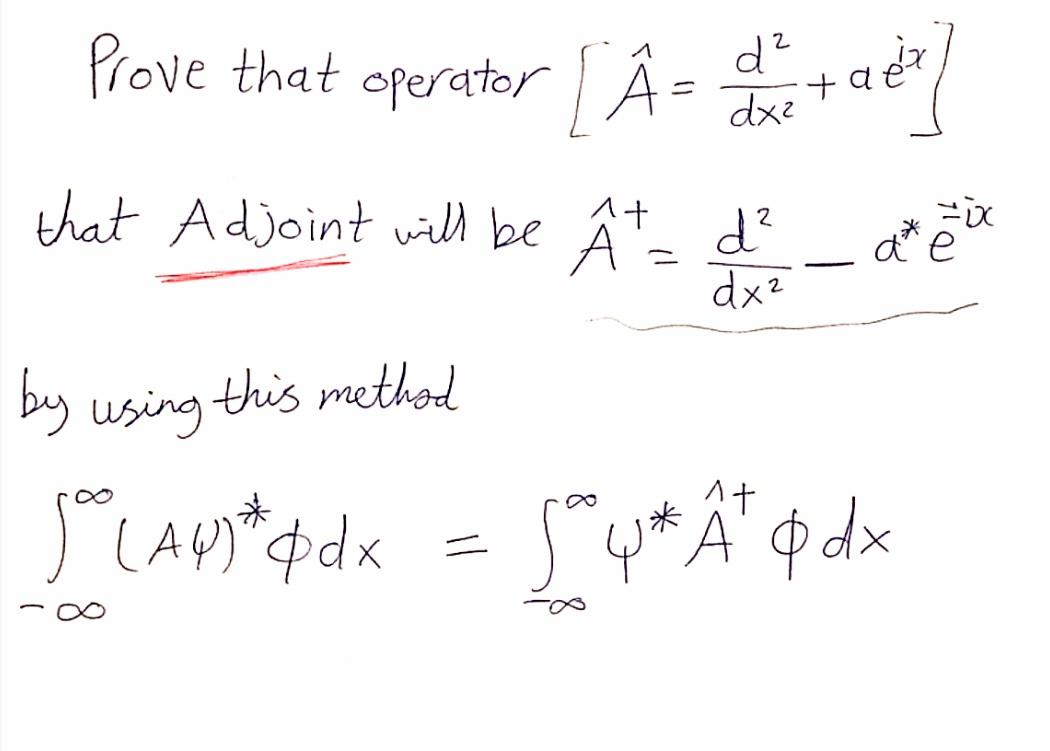 Prove that operator [ Â = d²/dx² + a e^{ix} ]
that Adjoint will be Â† = d²/dx² − a* e^{-ix}
by using this method
∫_{-∞}^{∞} (Aψ)* φ dx = ∫_{-∞}^{∞} ψ* Â† φ dx